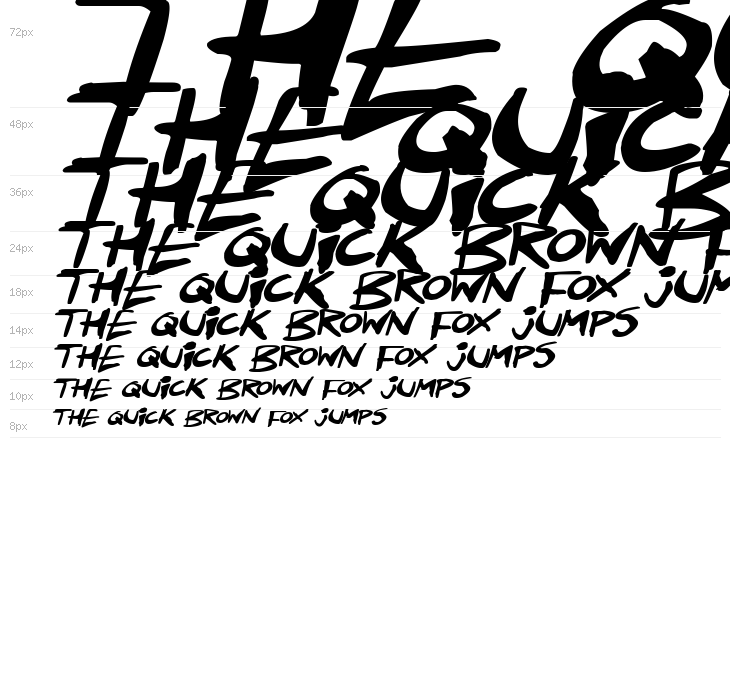 72px THE QU
48px THE QUiCK
36px THE QUiCK B
24px THE QUiCK BROWN F
18px THE QUiCK BROWN FOX jUM
14px THE QUiCK BROWN FOX jUMPS
12px THE QUiCK BROWN FOX jUMPS
10px THE QUiCK BROWN FOX jUMPS
8px THE QUiCK BROWN FOX jUMPS